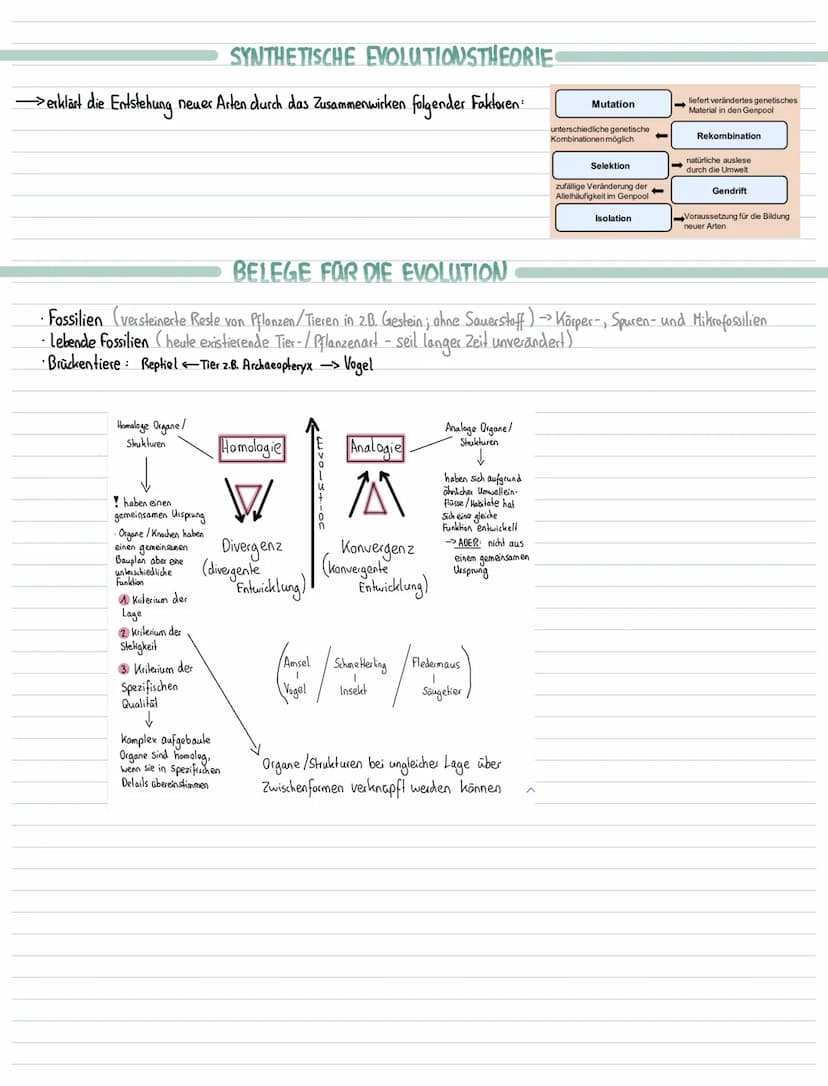 SYNTHETISCHE EVOLUTIONSTHEORIE
→ erklärt die Entstehung neuer Arten durch das Zusammenwirken folgender Faktoren:
Mutation → liefert verändertes genetisches
Material in den Genpool
unterschiedliche genetische
Kombinationen möglich ← Rekombination
Selektion → natürliche auslese
durch die Umwelt
zufällige Veränderung der
Allelhäufigkeit im Genpool ← Gendrift
Isolation → Voraussetzung für die Bildung
neuer Arten
BELEGE FÜR DIE EVOLUTION
· Fossilien (versteinerte Reste von Pflanzen/Tieren in z.B. Gestein; ohne Sauerstoff) → Körper-, Spuren- und Mikrofossilien
· Lebende Fossilien (heute existierende Tier-/Pflanzenart - seit langer Zeit unverändert)
· Brückentiere: Reptiel ← Tier z.B. Archaeopteryx → Vogel
Homologe Organe/
Strukturen
↓
! haben einen
gemeinsamen Ursprung
· Organe/Knochen haben
einen gemeinsamen
Bauplan aber eine
unterschiedliche
Funktion
1 Kriterium der
Lage
2 Kriterium der
Stetigkeit
3 Kriterium der
Spezifischen
Qualität
↓
Komplex aufgebaute
Organe sind homolog,
wenn sie in Spezifischen
Details übereinstimmen
Homologie
Divergenz
(divergente
Entwicklung)
Evolution
Analogie
Konvergenz
(konvergente
Entwicklung)
Analoge Organe/
Strukturen
↓
haben sich aufgrund
ähnlicher Umweltein-
flüsse/Habitate hat
sich eine gleiche
Funktion entwickelt
→ ABER: nicht aus
einem gemeinsamen
Ursprung
(Amsel / Schmetterling / Fledermaus
Vogel / Insekt / Säugetier)
Organe/Strukturen bei ungleicher Lage über
Zwischenformen verknüpft werden können